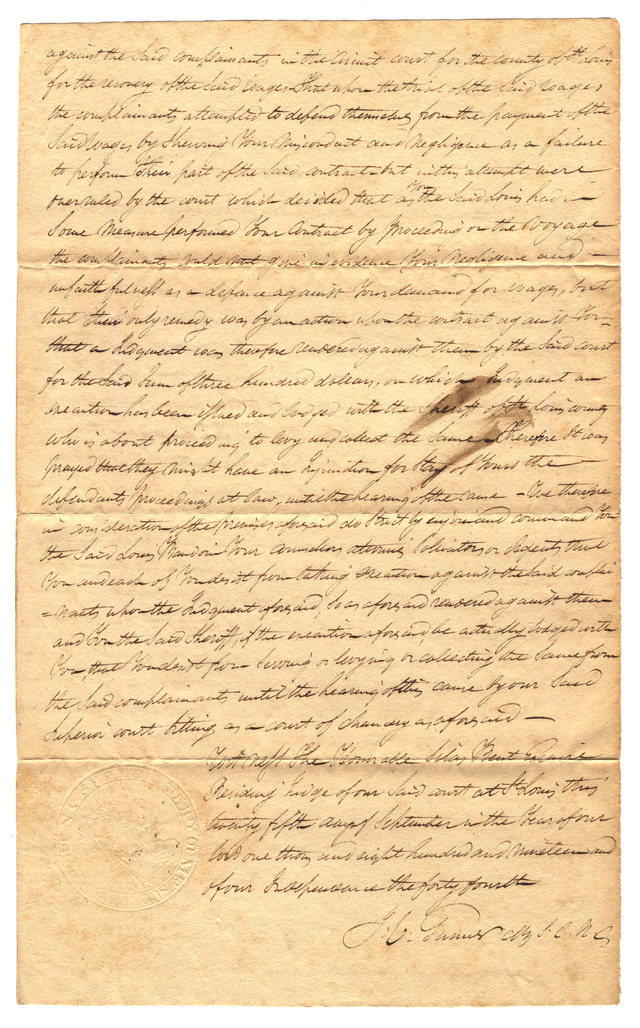 against the Said complainants in the Circuit court for the county of St Louis
for the recovery of the Said wages That upon the trial of the Said wages
the complainants attempted to defend themselves from the payment of the
Said Wages, by Shewing Your Misconduct and Negligence as a failure
to perform their part of the Said contract but in this attempt were
overruled by the court which decided that as the Said Louis had in
Some Measure performed Your Contract by proceeding on the Voyage
the complainants could not give in evidence Your Negligence and
unfaithfulness as a defence against Your demand for wages, but
that their only remedy was by an action upon the contract against You
that a Judgment was therefore rendered against them by the Said court
for the Said Sum of three hundred dollars, on which Judgment an
execution has been issued and lodged with the Sheriff of St Louis county
who is about proceeding to levy and collect the Same Therefore it was
prayed that they Might have an injunction for Stay of Yours the
defendants proceedings at law, until the hearing of the cause - We therefore
in consideration of the premises aforesaid do Strictly enjoin and command You
the Said Louis Your Counsellors attornies Solicitors or Agents that
You and each of You desist from taking execution against the Said complai
=nants upon the Judgment aforesaid, So as aforesaid rendered against them
and You the Said Sheriff, if the execution aforesaid be actually lodged with
You that You desist from Serving or levying or collecting the Same from
the Said complainants until the hearing of this cause by our Said
Superior court Sitting as a court of chancery as aforesaid —
Witness The Honorable Silas Bent Esquire
Presiding Judge of our Said court at St Louis this
twenty fifth day of September in the Year of our
lord one thousand eight hundred and Nineteen and
of our Independence the forty fourth